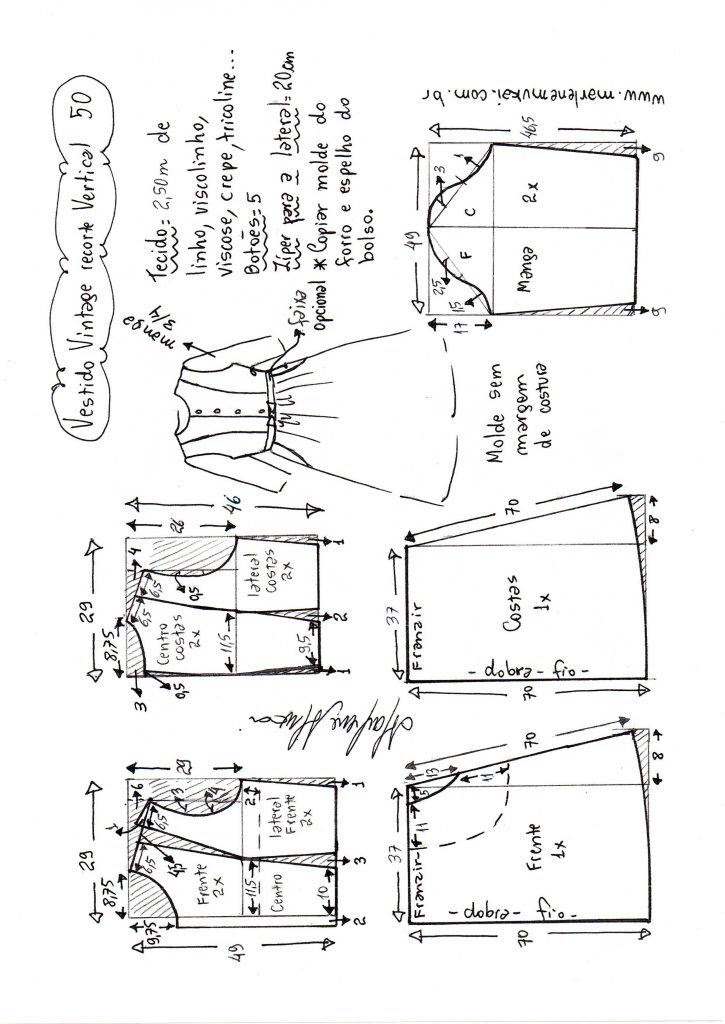 Vestido Vintage recorte Vertical 50
Tecido = 2,50m de
linho, viscolinho,
viscose, crepe, tricoline...
Botões = 5
Zíper para a lateral = 20cm
* Copiar molde do
forro e espelho do
bolso.
manga
3/4
faixa
opcional
Molde sem
margem
de costura
www.marlenemukai.com.br
49
17
1,5
2,5
F
C
3
1
46,5
Manga
2x
9
9
29
8,75
46
26
4
6,5
6,5
0,5
3
0,5
Centro
costas
2x
lateral
costas
2x
11,5
9,5
1
2
1
37
Franzir
70
70
8
Costas
1x
- dobra - fio -
29
8,75
9,75
49
29
6
1
6,5
6,5
4,5
3
4
2
Frente
2x
Centro
lateral
Frente
2x
11,5
10
2
3
1
37
Franzir
11
5
13
11
70
70
8
Frente
1x
- dobra - fio -